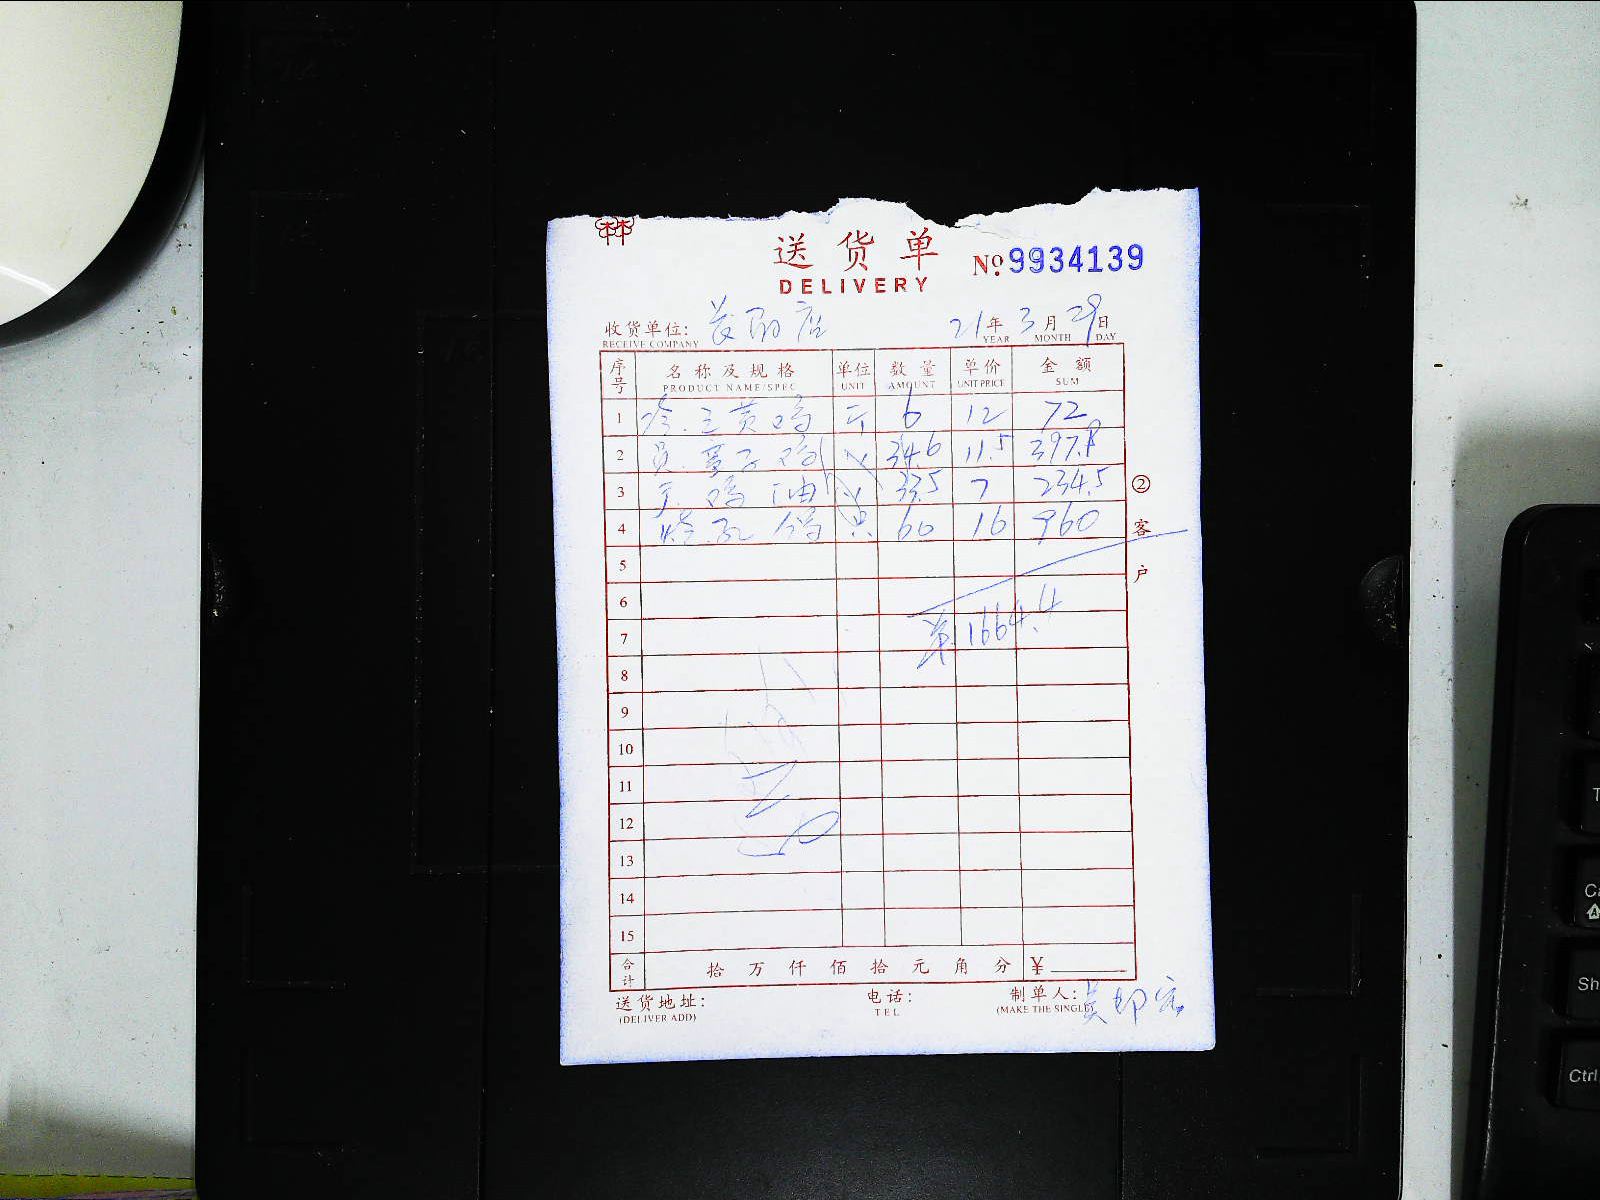 送货单
No.9934139
DELIVERY
收货单位: 21年3月29日
RECEIVE COMPANY YEAR MONTH DAY
序号 名称及规格 单位 数量 单价 金额
PRODUCT NAME/SPEC UNIT AMOUNT UNIT PRICE SUM
1 冷.三黄鸡 斤 6 12 72
2 34.6 11.5 397.9
3 鸡 油 33.5 7 234.5
4 60 16 960
5
6
7 1664.4
8
9
10
11
12
13
14
15
合计 拾万仟佰拾元角分 ¥
② 客户
送货地址: 电话: 制单人:
(DELIVER ADD) TEL (MAKE THE SINGLE)
Ctrl